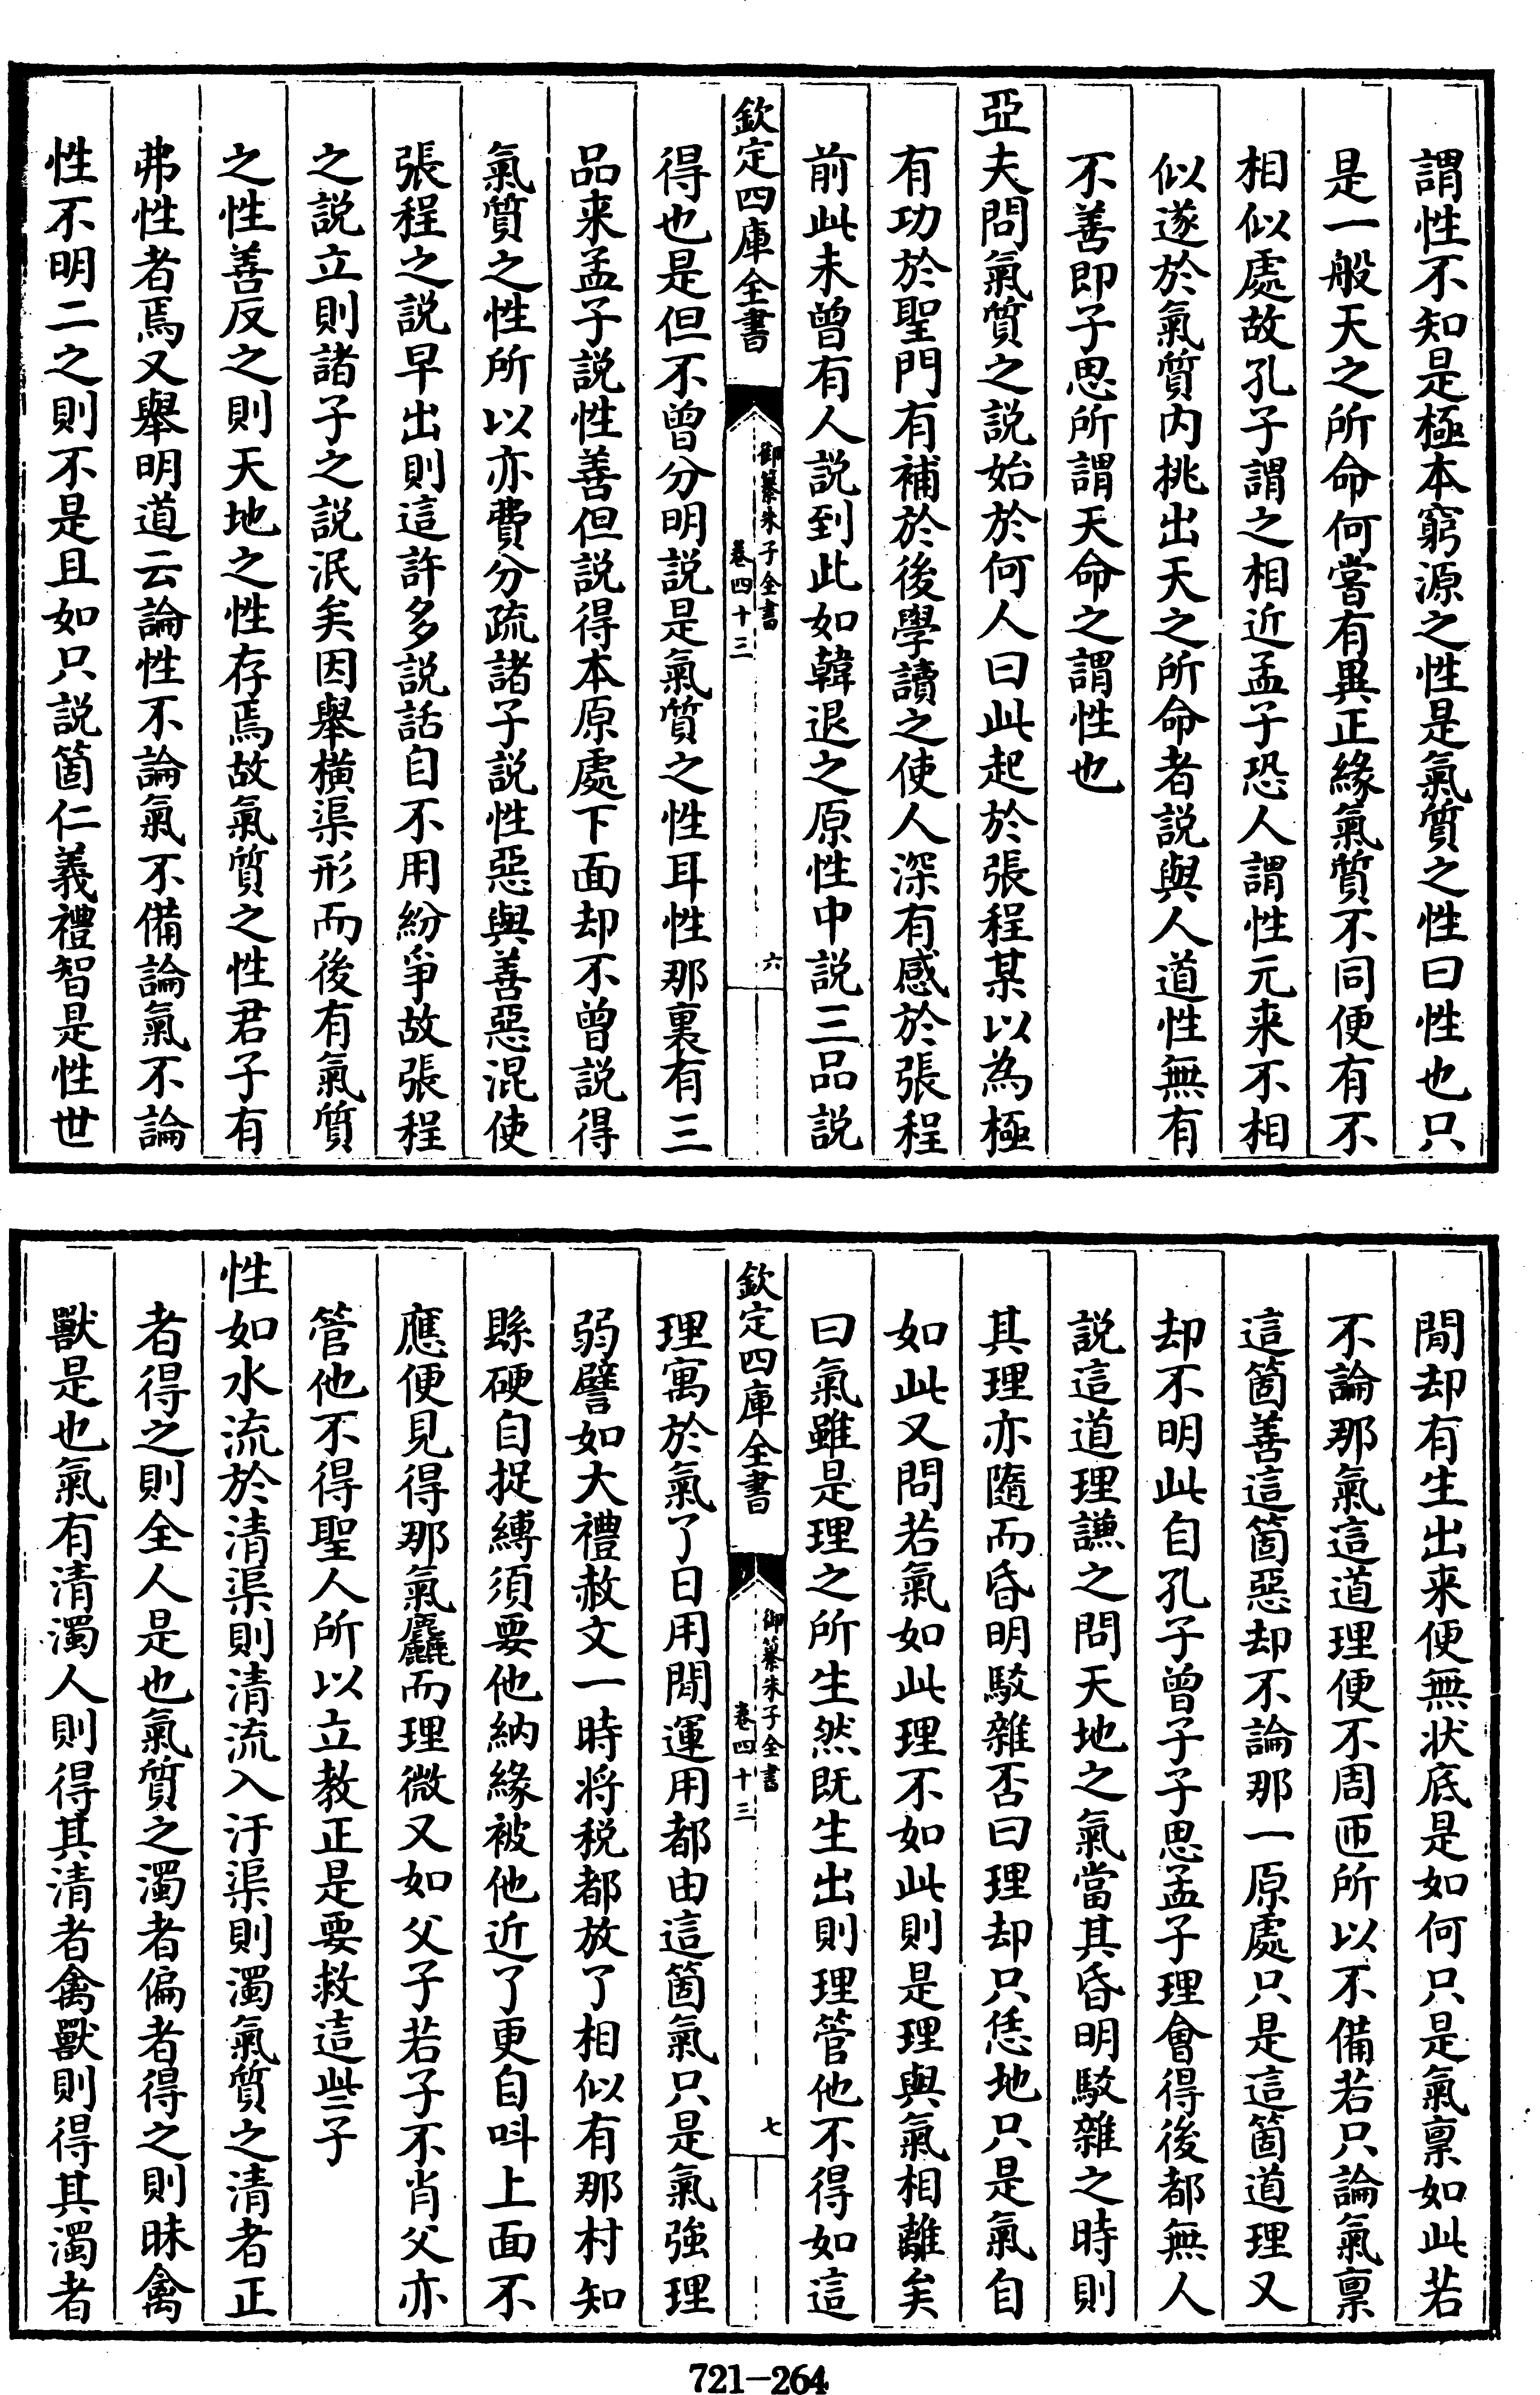 謂性不知是極本窮源之性是氣質之性曰性也只
是一般天之所命何嘗有異正緣氣質不同便有不
相似處故孔子謂之相近孟子恐人謂性元来不相
似遂於氣質内挑出天之所命者説與人道性無有
不善即子思所謂天命之謂性也
亞夫問氣質之説始於何人曰此起於張程某以為極
有功於聖門有補於後學讀之使人深有感於張程
前此未曾有人説到此如韓退之原性中説三品説
欽定四庫全書
御纂朱子全書
卷四十三
六
得也是但不曾分明説是氣質之性耳性那裏有三
品来孟子説性善但説得本原處下面却不曾説得
氣質之性所以亦費分疏諸子説性惡與善惡混使
張程之説早出則這許多説話自不用紛爭故張程
之説立則諸子之説泯矣因舉横渠形而後有氣質
之性善反之則天地之性存焉故氣質之性君子有
弗性者焉又舉明道云論性不論氣不備論氣不論
性不明二之則不是且如只説箇仁義禮智是性世
間却有生出来便無状底是如何只是氣禀如此若
不論那氣這道理便不周匝所以不備若只論氣禀
這箇善這箇惡却不論那一原處只是這箇道理又
却不明此自孔子曾子子思孟子理會得後都無人
説這道理謙之問天地之氣當其昏明駁雜之時則
其理亦隨而昏明駁雜否曰理却只恁地只是氣自
如此又問若氣如此理不如此則是理與氣相離矣
曰氣雖是理之所生然既生出則理管他不得如這
欽定四庫全書
御纂朱子全書
卷四十三
七
理寓於氣了日用間運用都由這箇氣只是氣強理
弱譬如大禮赦文一時将税都放了相似有那村知
縣硬自捉縛須要他納緣被他近了更自呌上面不
應便見得那氣麤而理微又如父子若子不肖父亦
管他不得聖人所以立教正是要救這些子
性如水流於清渠則清流入汙渠則濁氣質之清者正
者得之則全人是也氣質之濁者偏者得之則昧禽
獸是也氣有清濁人則得其清者禽獸則得其濁者
721-264